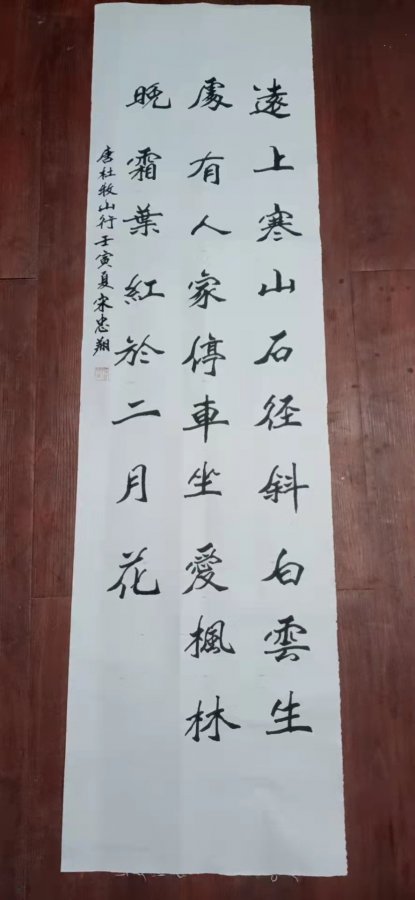 遠上寒山石径斜白雲生
處有人家停車坐愛楓林
晚霜葉紅於二月花
唐杜牧山行壬寅夏宋忠翔